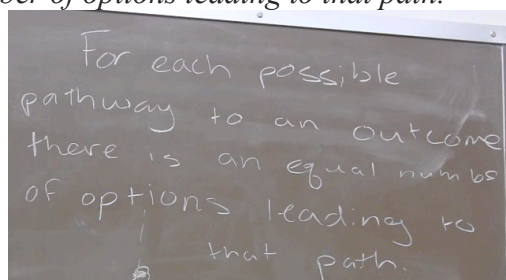 ber of options leading to that path.
For each possible
pathway to an outcome
there is an equal numbe
of options leading to
that path.